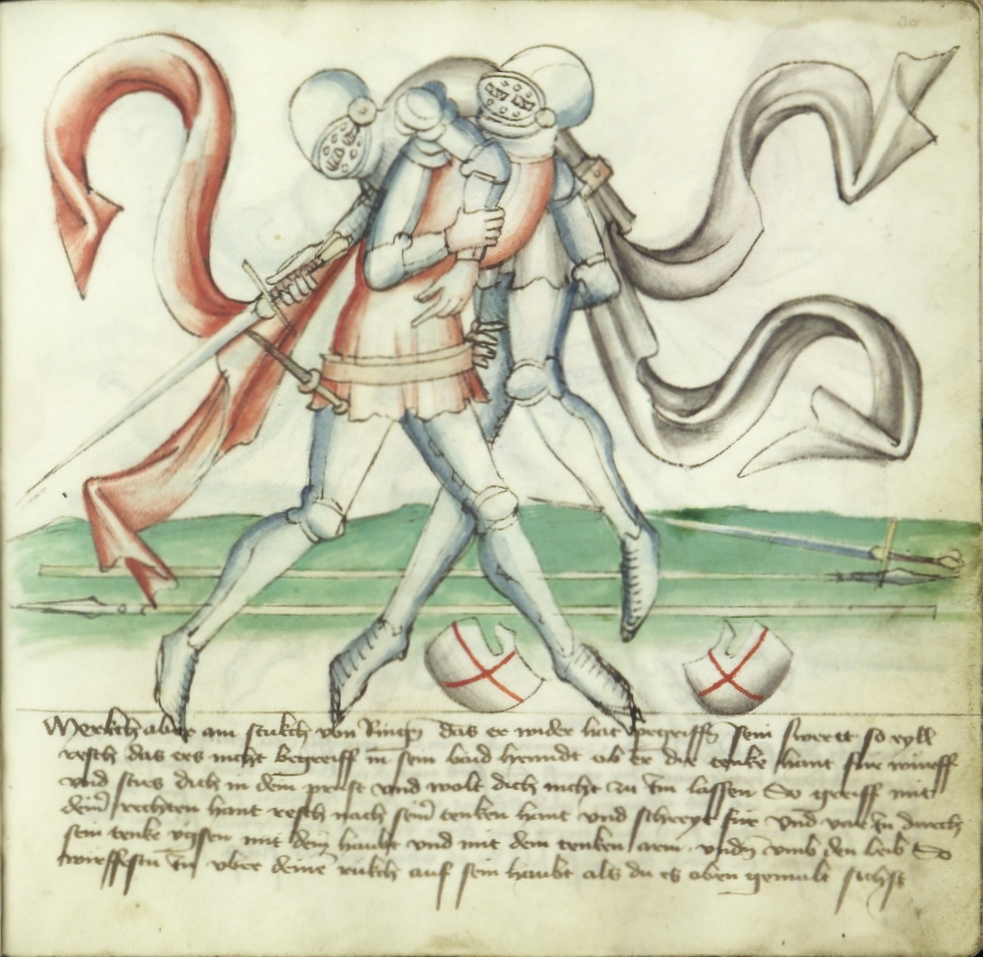 Merckch aber am stukch von Ringn das er wider hat begriffn sein swertt so eyll
resch das ers nicht begreiff in sein baid henndt ob er die tenke hant fur wurff
vnd sties dich in dein prust vnd wolt dich nicht zu im lassen So greiff mit
deinr rechten hant resch nach seinr tenken hant vnd schreyt fur vnd var im durch
sein tenke vgsen mit dem haubt vnd mit dem tenken arm vndn vmb den leib So
wirffestu in vber deinen rukch auf sein haubt als du es oben gemalt sichst